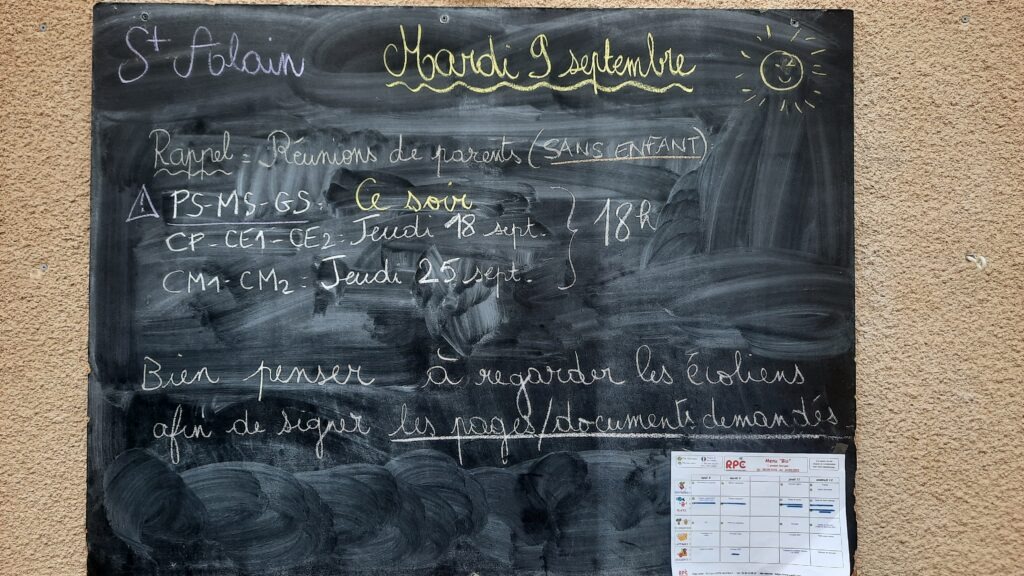 St Alain
Mardi 9 septembre
Rappel = Réunions de parents (SANS ENFANT)
PS-MS-GS - Ce soir
CP-CE1-CE2 - Jeudi 18 sept.
CM1-CM2 - Jeudi 25 sept.
18h
Bien penser à regarder les écoliens
afin de signer les pages/documents demandés
RPC
Menu "Bio"